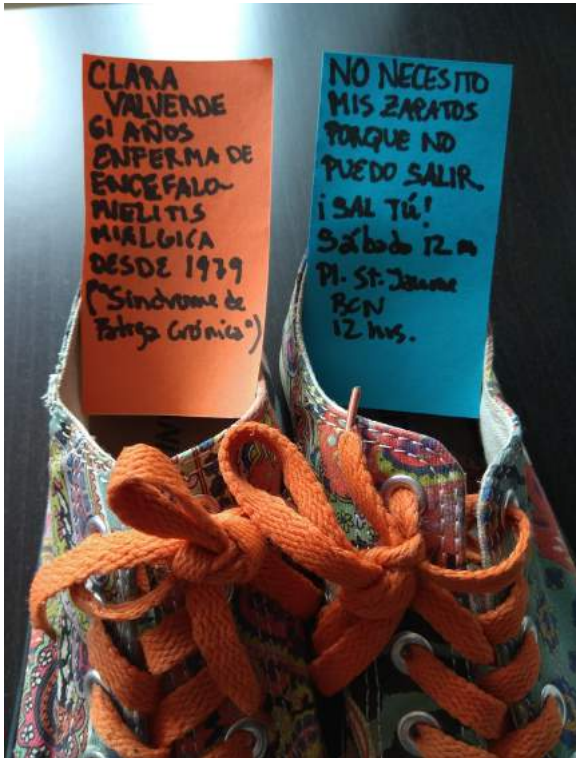 CLARA
VALVERDE
61 AÑOS
ENFERMA DE
ENCEFALO-
MIELITIS
MIALGICA
DESDE 1979
("Síndrome de
Fatiga Crónica")
NO NECESITO
MIS ZAPATOS
PORQUE NO
PUEDO SALIR.
¡SAL TÚ!
Sábado 12 m
Pl. St. Jaume
BCN
12 hrs.